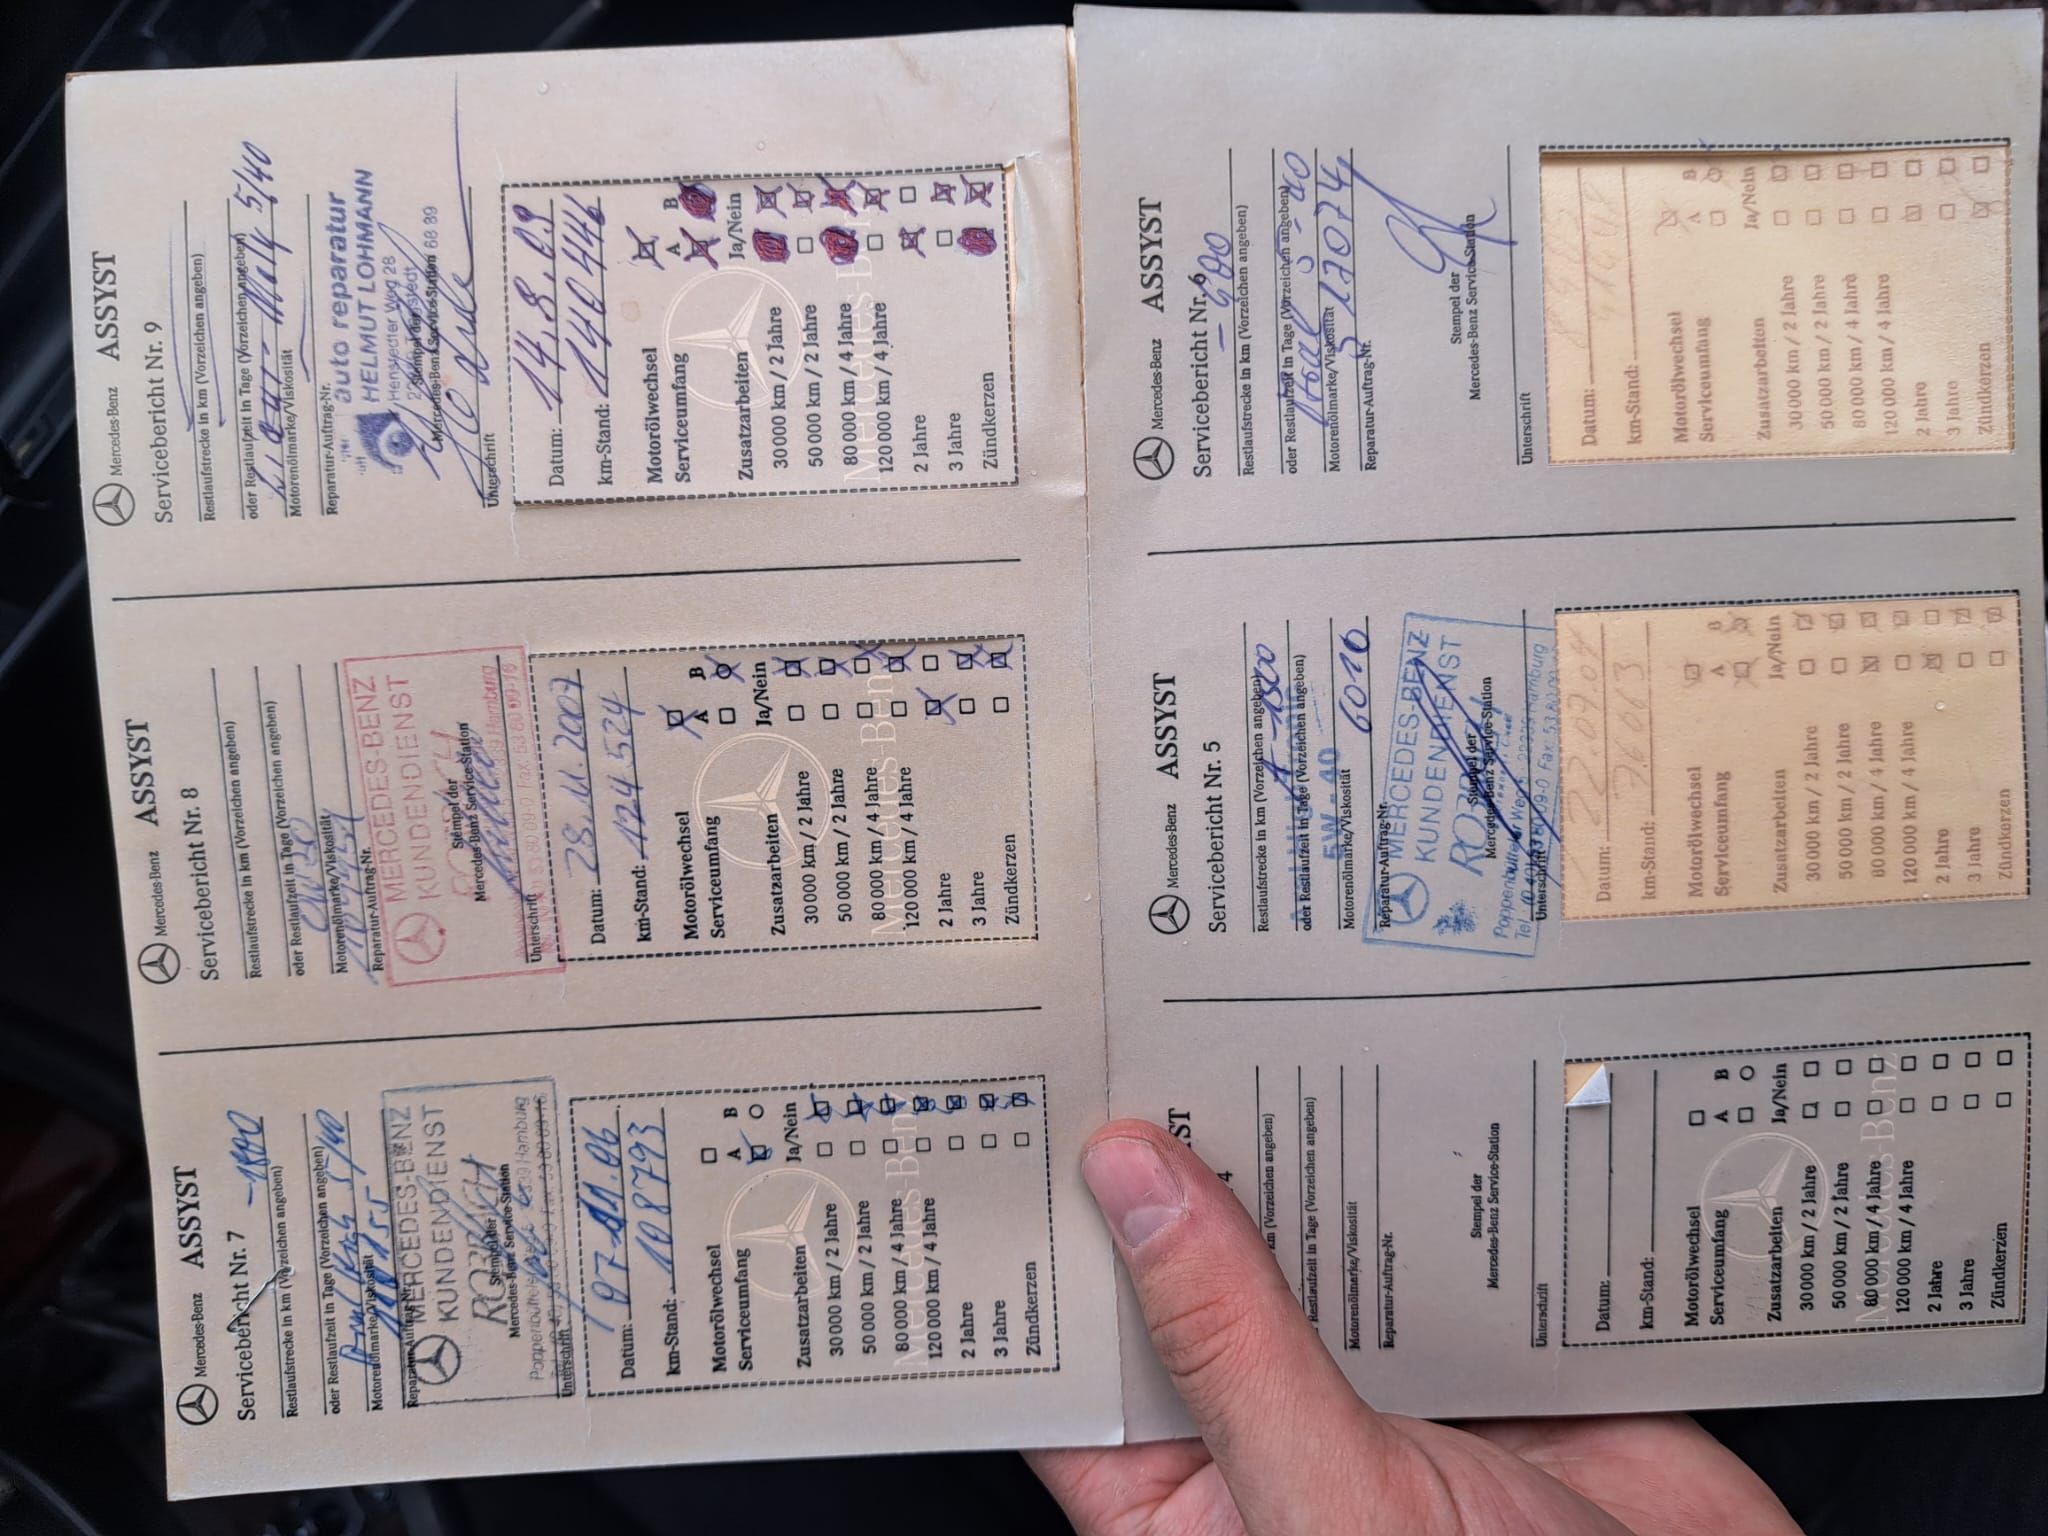 Mercedes-Benz ASSYST
Servicebericht Nr. 7
-1800
Restlaufstrecke in km (Vorzeichen angeben)
oder Restlaufzeit in Tage (Vorzeichen angeben)
5/40
Motorenölmarke/Viskosität
Reparatur-Auftrag-Nr.
MERCEDES-BENZ
KUNDENDIENST
Stempel der
Mercedes-Benz Service-Station
Unterschrift
Datum: 07.11.06
km-Stand: 108793
Motorölwechsel
A B
Serviceumfang
Ja/Nein
Zusatzarbeiten
30000 km / 2 Jahre
50000 km / 2 Jahre
80000 km / 4 Jahre
120000 km / 4 Jahre
2 Jahre
3 Jahre
Zündkerzen
Mercedes-Benz ASSYST
Servicebericht Nr. 8
Restlaufstrecke in km (Vorzeichen angeben)
oder Restlaufzeit in Tage (Vorzeichen angeben)
Motorenölmarke/Viskosität
Reparatur-Auftrag-Nr.
MERCEDES-BENZ
KUNDENDIENST
Stempel der
Mercedes-Benz Service-Station
Unterschrift
Datum: 28.11.2007
km-Stand: 124524
Motorölwechsel
A B
Serviceumfang
Ja/Nein
Zusatzarbeiten
30000 km / 2 Jahre
50000 km / 2 Jahre
80000 km / 4 Jahre
120000 km / 4 Jahre
2 Jahre
3 Jahre
Zündkerzen
Mercedes-Benz ASSYST
Servicebericht Nr. 9
Restlaufstrecke in km (Vorzeichen angeben)
oder Restlaufzeit in Tage (Vorzeichen angeben)
5/40
Motorenölmarke/Viskosität
Reparatur-Auftrag-Nr.
auto reparatur
HELMUT LOHMANN
Henstedter Weg 28
Stempel der
Mercedes-Benz Service-Station
Unterschrift
Datum: 14.8.09
km-Stand: 140446
Motorölwechsel
A B
Serviceumfang
Ja/Nein
Zusatzarbeiten
30000 km / 2 Jahre
50000 km / 2 Jahre
80000 km / 4 Jahre
120000 km / 4 Jahre
2 Jahre
3 Jahre
Zündkerzen
km (Vorzeichen angeben)
Restlaufzeit in Tage (Vorzeichen angeben)
Motorenölmarke/Viskosität
Reparatur-Auftrag-Nr.
Stempel der
Mercedes-Benz Service-Station
Unterschrift
Datum:
km-Stand:
Motorölwechsel
A B
Serviceumfang
Ja/Nein
Zusatzarbeiten
30000 km / 2 Jahre
50000 km / 2 Jahre
80000 km / 4 Jahre
120000 km / 4 Jahre
2 Jahre
3 Jahre
Zündkerzen
Mercedes-Benz ASSYST
Servicebericht Nr. 5
Restlaufstrecke in km (Vorzeichen angeben)
oder Restlaufzeit in Tage (Vorzeichen angeben)
5W-40
Motorenölmarke/Viskosität
6010
Reparatur-Auftrag-Nr.
MERCEDES-BENZ
KUNDENDIENST
Stempel der
Mercedes-Benz Service-Station
Unterschrift
Datum: 22.09.04
km-Stand: 76063
Motorölwechsel
A B
Serviceumfang
Ja/Nein
Zusatzarbeiten
30000 km / 2 Jahre
50000 km / 2 Jahre
80000 km / 4 Jahre
120000 km / 4 Jahre
2 Jahre
3 Jahre
Zündkerzen
Mercedes-Benz ASSYST
Servicebericht Nr. 6
Restlaufstrecke in km (Vorzeichen angeben)
oder Restlaufzeit in Tage (Vorzeichen angeben)
Motorenölmarke/Viskosität
Reparatur-Auftrag-Nr.
Stempel der
Mercedes-Benz Service-Station
Unterschrift
Datum:
km-Stand:
Motorölwechsel
A B
Serviceumfang
Ja/Nein
Zusatzarbeiten
30000 km / 2 Jahre
50000 km / 2 Jahre
80000 km / 4 Jahre
120000 km / 4 Jahre
2 Jahre
3 Jahre
Zündkerzen